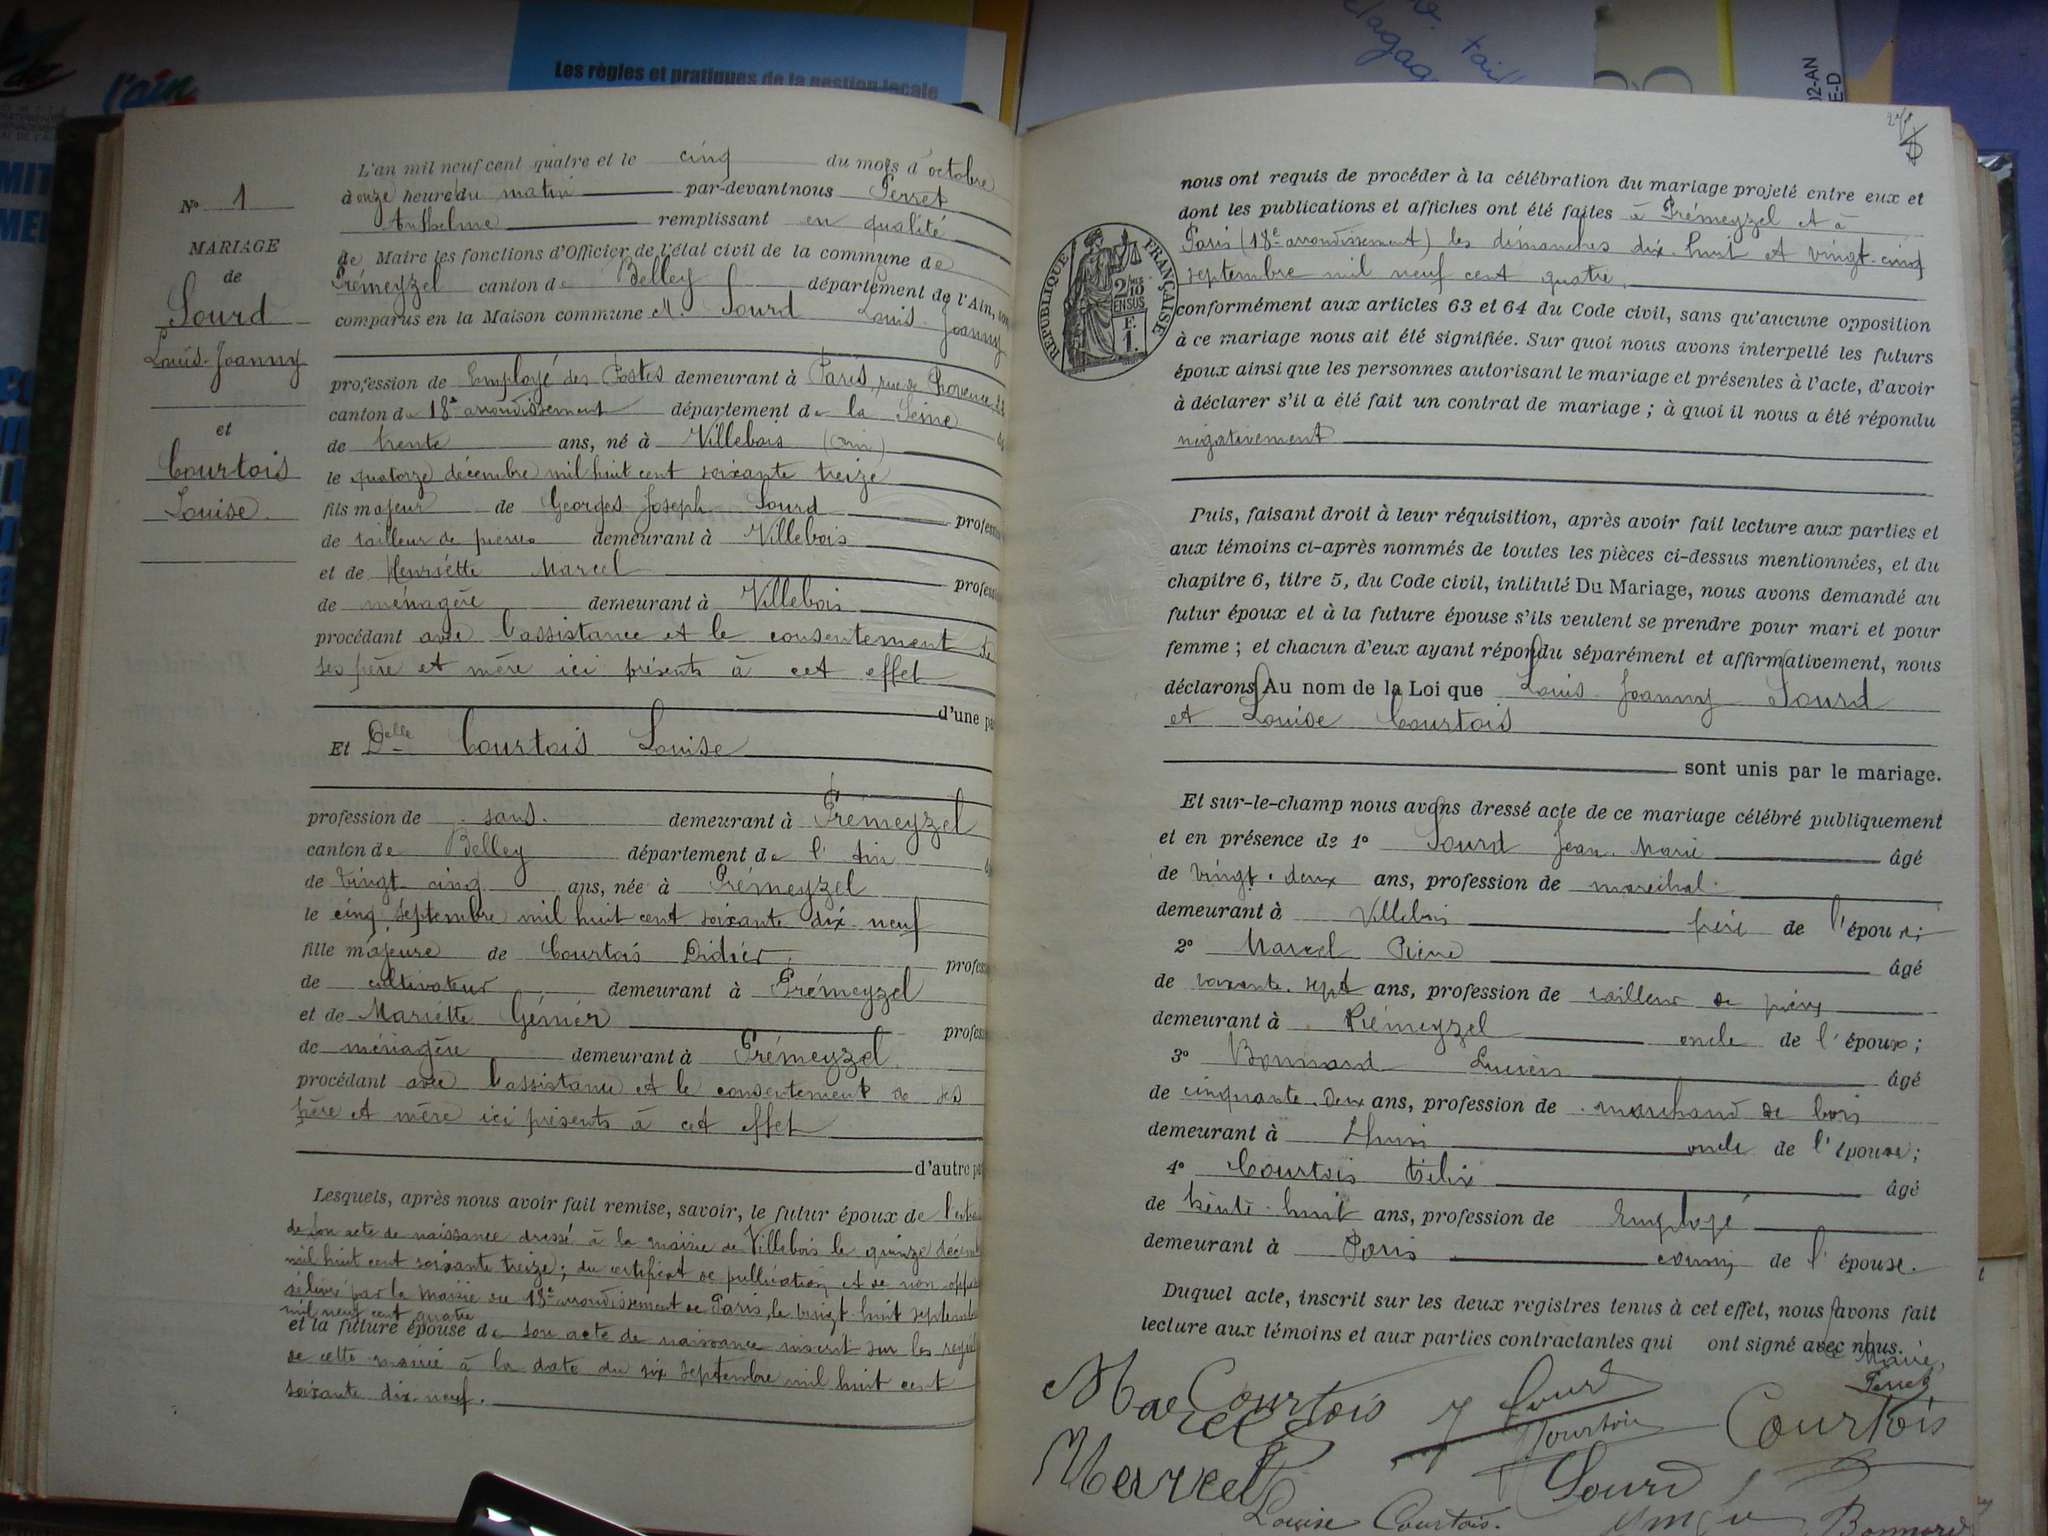 Les règles et pratiques de la gestion locale
l'ain
N° 1
MARIAGE
de
Sourd
Louis-Joanny
et
Courtois
Louise.
L'an mil neuf cent quatre et le cinq du mois d'octobre
à onze heure du matin par-devant nous Perret
Anthelme remplissant en qualité
de Maire les fonctions d'Officier de l'état civil de la commune de
Prémeyzel canton de Belley département de l'Ain, son
comparus en la Maison commune M. Sourd Louis-Joanny
profession de Employé des Postes demeurant à Paris, rue de Provence
canton du 18e arrondissement département de la Seine
de trente ans, né à Villebois (Ain)
le quatorze décembre mil huit cent soixante treize
fils majeur de Georges Joseph Sourd profess
de tailleur de pierres demeurant à Villebois
et de Henriette Marcel profess
de ménagère demeurant à Villebois
procédant avec l'assistance et le consentement de
ses père et mère ici présents à cet effet
d'une pa
Et Delle Courtois Louise
profession de sans demeurant à Prémeyzel
canton de Belley département de l'Ain
de vingt-cinq ans, née à Prémeyzel
le cinq septembre mil huit cent soixante dix-neuf
fille majeure de Courtois Didier profess
de cultivateur demeurant à Prémeyzel
et de Mariette Génier profess
de ménagère demeurant à Prémeyzel
procédant avec l'assistance et le consentement de ses
père et mère ici présents à cet effet
d'autre pa
Lesquels, après nous avoir fait remise, savoir, le futur époux de l'extrai
de son acte de naissance dressé à la mairie de Villebois le quinze décem
mil huit cent soixante treize; du certificat de publication et de non oppo
délivré par la Mairie du 18e arrondissement de Paris, le vingt-huit septemb
mil neuf cent quatre
et la future épouse de son acte de naissance inscrit sur les regis
de cette mairie à la date du six septembre mil huit cent
soixante dix-neuf.
nous ont requis de procéder à la célébration du mariage projeté entre eux et
dont les publications et affiches ont été faites à Prémeyzel et à
Paris (18e arrondissement) les dimanches dix-huit et vingt-cinq
septembre mil neuf cent quatre,
RÉPUBLIQUE FRANÇAISE
2/10 EN SUS
F.
1.
conformément aux articles 63 et 64 du Code civil, sans qu'aucune opposition
à ce mariage nous ait été signifiée. Sur quoi nous avons interpellé les futurs
époux ainsi que les personnes autorisant le mariage et présentes à l'acte, d'avoir
à déclarer s'il a été fait un contrat de mariage; à quoi il nous a été répondu
négativement
Puis, faisant droit à leur réquisition, après avoir fait lecture aux parties et
aux témoins ci-après nommés de toutes les pièces ci-dessus mentionnées, et du
chapitre 6, titre 5, du Code civil, intitulé Du Mariage, nous avons demandé au
futur époux et à la future épouse s'ils veulent se prendre pour mari et pour
femme; et chacun d'eux ayant répondu séparément et affirmativement, nous
déclarons Au nom de la Loi que Louis-Joanny Sourd
et Louise Courtois
sont unis par le mariage.
Et sur-le-champ nous avons dressé acte de ce mariage célébré publiquement
et en présence de 1° Sourd Jean-Marie âgé
de vingt-deux ans, profession de maréchal
demeurant à Villebois frère de l'époux;
2° Marcel Pierre âgé
de soixante-sept ans, profession de tailleur de pierre
demeurant à Prémeyzel oncle de l'époux;
3° Bonnard Lucien âgé
de cinquante-deux ans, profession de marchand de bois
demeurant à Lhuis oncle de l'épouse;
4° Courtois Félix âgé
de trente-huit ans, profession de Employé
demeurant à Paris cousin de l'épouse.
Duquel acte, inscrit sur les deux registres tenus à cet effet, nous avons fait
lecture aux témoins et aux parties contractantes qui ont signé avec nous.
Le Maire,
Perret
Marcel Courtois J Sourd
Courtois Courtois
Marcel Sourd
Louise Courtois. Bonnard